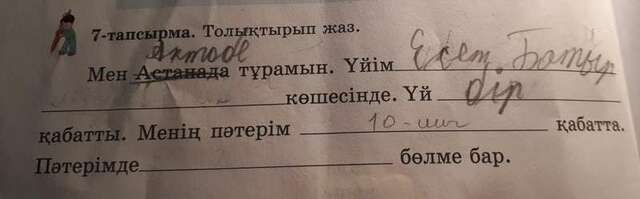 7-тапсырма. Толықтырып жаз.
Ақтобе
Мен Астанада тұрамын. Үйім Есет Батыр
көшесінде. Үй бір
қабатты. Менің пәтерім 10-шы қабатта.
Пәтерімде бөлме бар.